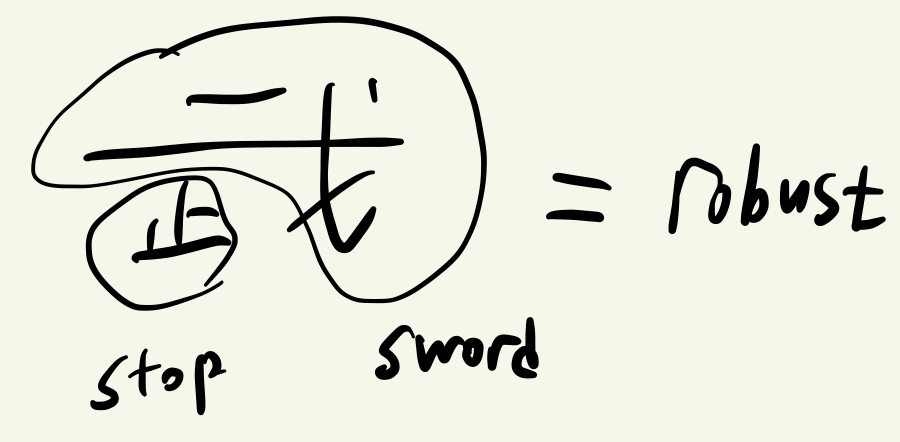 武 = robust
stop sword